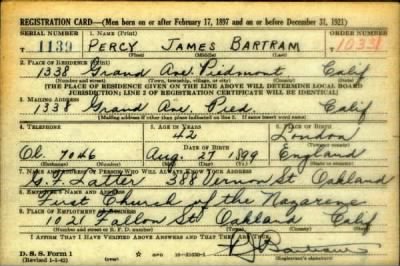 REGISTRATION CARD—(Men born on or after February 17, 1897 and on or before December 31, 1921)
SERIAL NUMBER 1. NAME (Print) ORDER NUMBER
T 1139 PERCY JAMES BARTRAM 10331
(First) (Middle) (Last)
2. PLACE OF RESIDENCE (Print)
1338 Grand Ave. Piedmont Calif
(Number and street) (Town, township, village, or city) (County) (State)
[THE PLACE OF RESIDENCE GIVEN ON THE LINE ABOVE WILL DETERMINE LOCAL BOARD
JURISDICTION; LINE 2 OF REGISTRATION CERTIFICATE WILL BE IDENTICAL]
3. MAILING ADDRESS
1338 Grand Ave. Pied. Calif
[Mailing address if other than place indicated on line 2. If same insert word same]
4. TELEPHONE 5. AGE IN YEARS 6. PLACE OF BIRTH
42 London
DATE OF BIRTH (Town or county)
Ol. 7046 Aug. 27 1899 England
(Exchange) (Number) (Mo.) (Day) (Yr.) (State or country)
7. NAME AND ADDRESS OF PERSON WHO WILL ALWAYS KNOW YOUR ADDRESS
Latter 388 Vernon St Oakland
8. EMPLOYER'S NAME AND ADDRESS
First Church of the Nazarene
9. PLACE OF EMPLOYMENT OR BUSINESS
1021 Fallon St. Oakland Calif
(Number and street or R. F. D. number) (Town) (County) (State)
I AFFIRM THAT I HAVE VERIFIED ABOVE ANSWERS AND THAT THEY ARE TRUE.
D. S. S. Form 1
(Revised 1-1-42) (over) Bartram